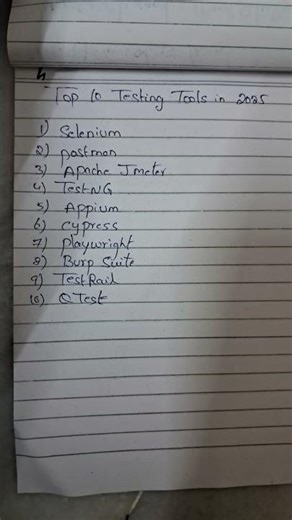 Top 10 Testing Tools in 2025
1) Selenium
2) postman
3) Apache Jmeter
4) TestNG
5) Appium
6) cypress
7) playwright
8) Burp Suite
9) TestRail
10) QTest